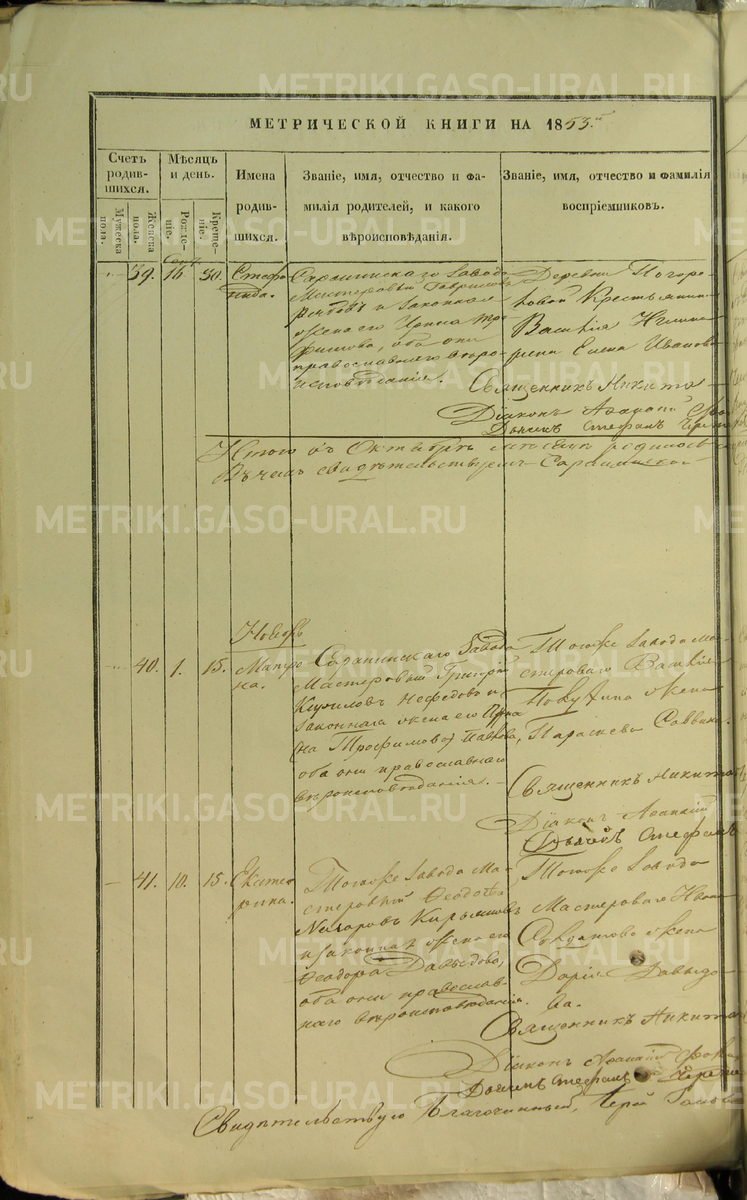 METRIKI.GASO-URAL.RU
МЕТРИЧЕСКОЙ КНИГИ НА 1853.
Счетъ родив-шихся.
Мужеска пола.
Женска пола.
Мѣсяцъ и день.
Рожде-ніе.
Креще-ніе.
Имена родив-шихся.
Званіе, имя, отчество и фа-
милія родителей, и какого
вѣроисповѣданія.
Званіе, имя, отчество и фамилія
воспріемниковъ.
39. 16 30. Стефа
нида.
Сараминскаго Завода
Мастеровый Гавриилъ
и Законная
жена его Ирина Тро
фимова, оба они
православнаго вѣро
исповѣданія.
Деревни Погоре
ловой Крестьянин
Василія
Елена Иванова
Священникъ Никита
Діаконъ Агапитъ
Дьячекъ Стефанъ
Итого въ Октябрѣ мѣсяцѣ родилось
Въ чемъ свидѣтельствуемъ Сараминско
Ноябрь
40. 1. 15. Матро
на.
Сараминскаго Завода
Мастеровый Григорій
Кириловъ Нефедовъ и
Законная жена его Ирина
Трофимова
оба они православнаго
вѣроисповѣданія.
Тогоже Завода Ма
стероваго Василія
жена
Параскева Саввина.
Священникъ Никита
Діаконъ Агапитъ
Дьячекъ Стефанъ
41. 10. 15. Екате
рина.
Тогоже Завода Ма
стеровый Ѳеодотъ
Назаровъ
и Законная жена его
Ѳеодора Давыдова,
оба они православ
наго вѣроисповѣданія.
Тогоже Завода
Мастероваго Ивана
жена
Дарія Давыдо
ва.
Священникъ Никита
Діаконъ Агапитъ
Дьячекъ Стефанъ
Свидѣтельствую Благочинный, Іерей